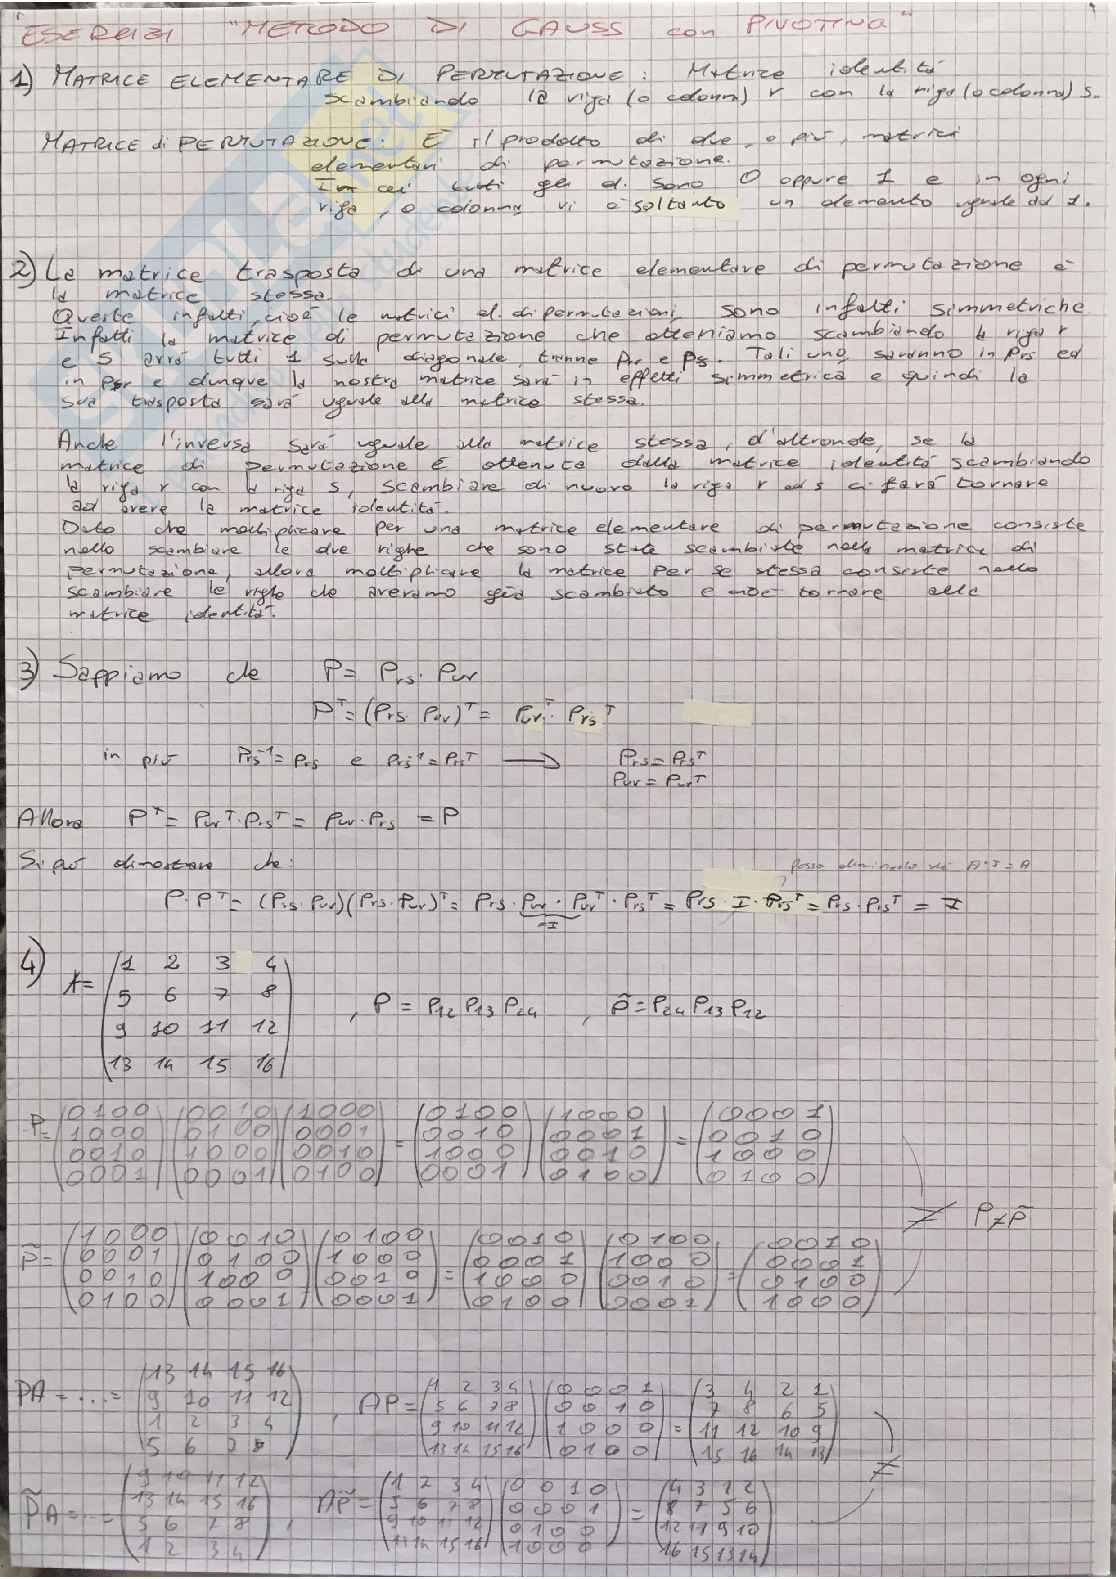 ESERCIZI "METODO DI GAUSS con PIVOTING"
1) MATRICE ELEMENTARE DI PERMUTAZIONE: Matrice identità
scambiando la riga (o colonna) r con la riga (o colonna) s.
MATRICE di PERMUTAZIONE: È il prodotto di due, o più, matrici
elementari di permutazione.
In cui tutti gli el. sono 0 oppure 1 e in ogni
riga, o colonna vi è soltanto un elemento uguale ad 1.
2) La matrice trasposta di una matrice elementare di permutazione è
la matrice stessa.
Queste infatti, cioè le matrici el. di permutazioni, sono infatti simmetriche
Infatti la matrice di permutazione che otteniamo scambiando la riga r
e s avrà tutti 1 sulla diagonale, tranne Prr e Pss. Tali uno, saranno in Prs ed
in Psr e dunque la nostra matrice sarà in effetti simmetrica e quindi la
sua trasposta sarà uguale alla matrice stessa.
Anche l'inversa sarà uguale alla matrice stessa, d'altronde, se la
matrice di permutazione è ottenuta dalla matrice identità scambiando
la riga r con la riga s, scambiare di nuovo la riga r ad s ci farà tornare
ad avere la matrice identità.
Dato che moltiplicare per una matrice elementare di permutazione consiste
nello scambiare le due righe che sono state scambiate nella matrice di
permutazione, allora moltiplicare la matrice per se stessa consiste nello
scambiare le righe che avevamo già scambiato e cioè tornare alla
matrice identità.
3) Sappiamo che P = Prs · Pur
Pᵀ = (Prs · Pur)ᵀ = Purᵀ · Prsᵀ
in più Prs⁻¹ = Prs e Prs⁻¹ = Prsᵀ → Prs = Prsᵀ
Pur = Purᵀ
Allora Pᵀ = Purᵀ · Prsᵀ = Pur · Prs = P
Si può dimostrare che:
posso eliminarlo A·I = A
P·Pᵀ = (Prs · Pur)(Prs · Pur)ᵀ = Prs · Pur · Purᵀ · Prsᵀ = Prs · I · Prsᵀ = Prs · Prsᵀ = I
=I
4) A = (1 2 3 4
5 6 7 8
9 10 11 12
13 14 15 16)
, P = P12 P13 P24 , P̃ = P24 P13 P12
P = (0100 (0010 (1000 = (0100 (1000 = (0001
1000 0100 0001 0010 0001 0010
0010 1000 0010 1000 0010 1000
0001) 0001) 0100) 0001) 0100) 0100)
≠ P ≠ P̃
P̃ = (1000 (0010 (0100 = (0010 (0100 = (0010
0001 0100 1000 0001 1000 0001
0010 1000 0010 1000 0010 0100
0100) 0001) 0001) 0100) 0001) 1000)
PA = ... = (13 14 15 16 , AP = (1 2 3 4 (0001 = (3 4 2 1
9 10 11 12 5 6 7 8 0010 7 8 6 5
1 2 3 4 9 10 11 12 1000 11 12 10 9
5 6 7 8) 13 14 15 16) 0100) 15 16 14 13)
≠
P̃A = ... = (9 10 11 12 , AP̃ = (1 2 3 4 (0010 = (4 3 1 2
13 14 15 16 5 6 7 8 0001 8 7 5 6
5 6 7 8 9 10 11 12 0100 12 11 9 10
1 2 3 4) 13 14 15 16) 1000) 16 15 13 14)